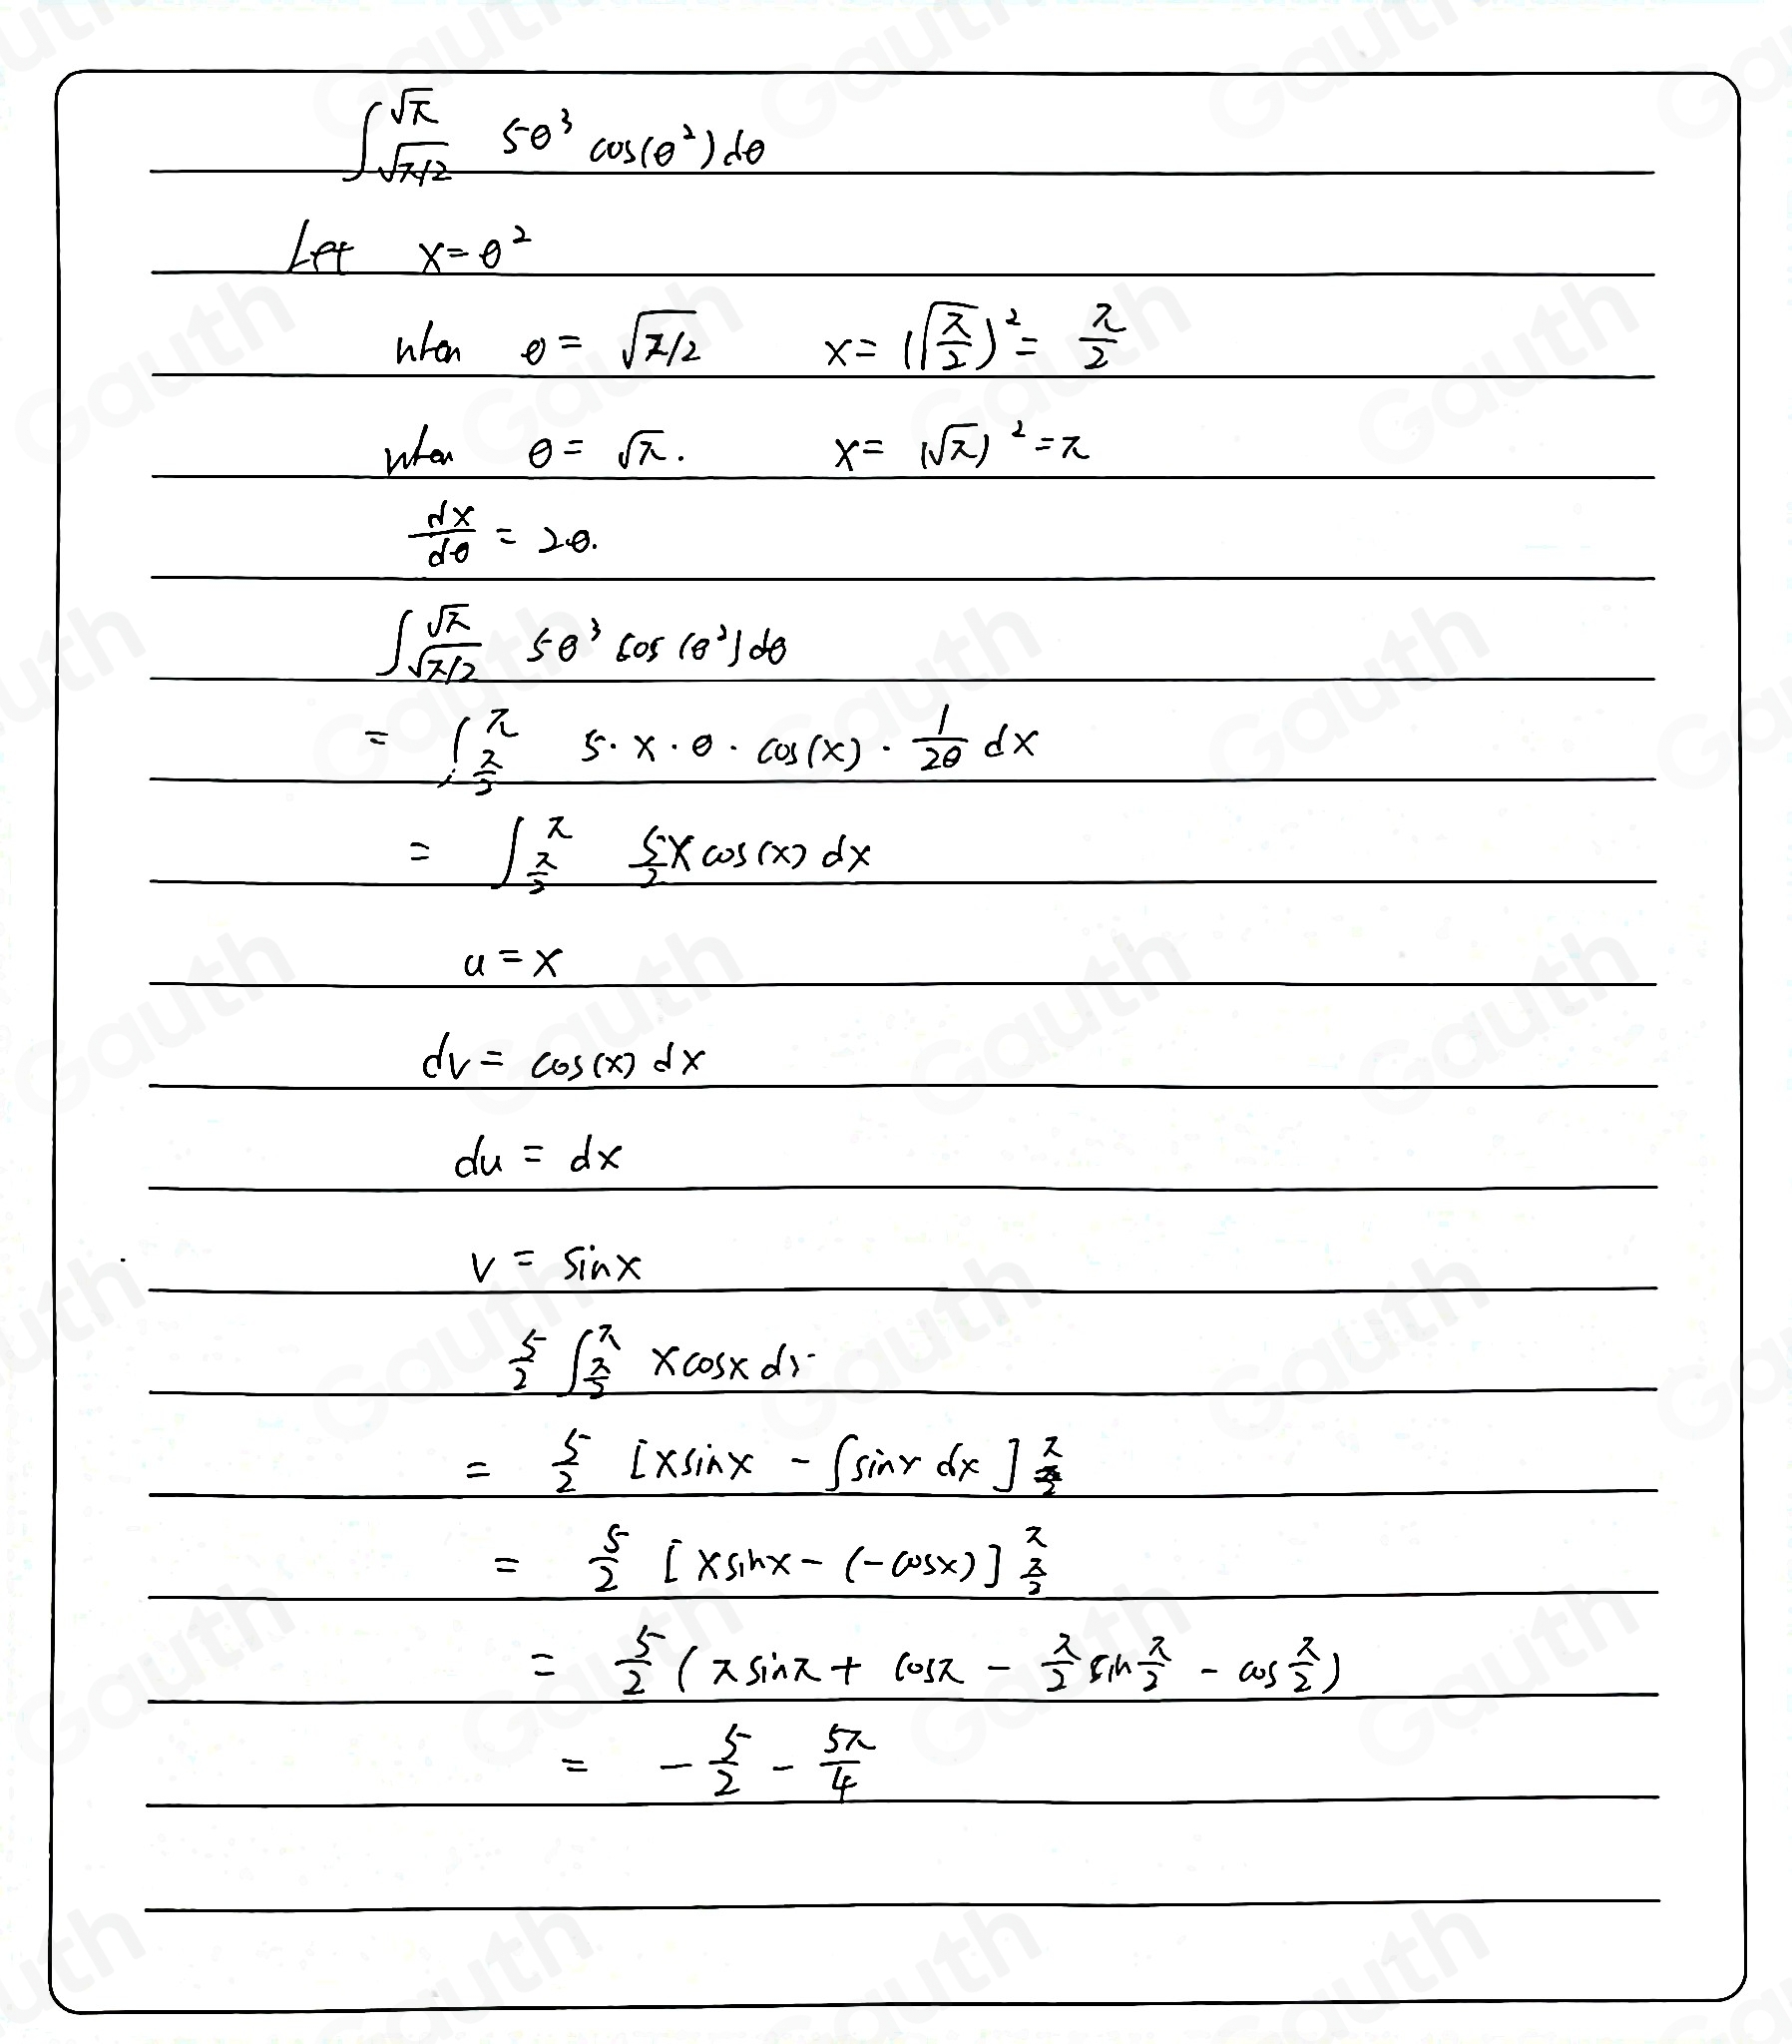 ∫_{√π/2}^{√π} 5θ³ cos(θ²)dθ
Let x=θ²
when θ= √π/2 x= (√π/2)²= π/2
when θ= √π. x= (√π)²=π
dx/dθ = 2θ.
∫_{√π/2}^{√π} 5θ³ cos(θ²)dθ
= ∫_{π/2}^{π} 5·x·θ·cos(x)·1/2θ dx
= ∫_{π/2}^{π} 5/2 x cos(x) dx
u = x
dv = cos(x) dx
du = dx
v = sinx
5/2 ∫_{π/2}^{π} xcosx dx
= 5/2 [xsinx - ∫sinx dx]_{π/2}^{π}
= 5/2 [xsinx - (-cosx)]_{π/2}^{π}
= 5/2 (πsinπ + cosπ - π/2 sin π/2 - cos π/2)
= -5/2 - 5π/4
Gauth